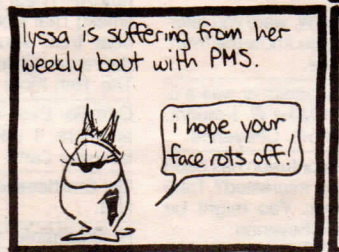 lyssa is suffering from her
weekly bout with PMS.
i hope your
face rots off!